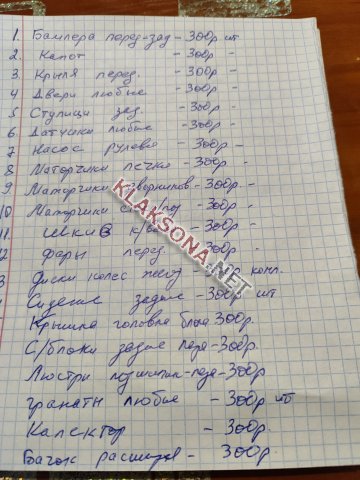 1. Бампера перед-зад - 300р шт
2. Капот - 300р -
3. Крылья перед. - 300р -
4 Двери любые - 300р -
5 Ступица зад. - 300р -
6. Датчики любые - 300р -
7 Насос рулевой - 300р -
8 Моторчики печки - 300р -
9 Маторчики дворников - 300р -
10 Маторчики - 300р -
11. - 300р -
12 Фары перед. - 300р -
Диски колес компл.
Сидение задние - 300р шт
Крышка головка блока 300р.
С/блоки задние - 300р.
Люстры - 300р
гранаты любые - 300р шт
Калектор - 300р.
Бачок расширов - 300р.
KLAKSONA.NET